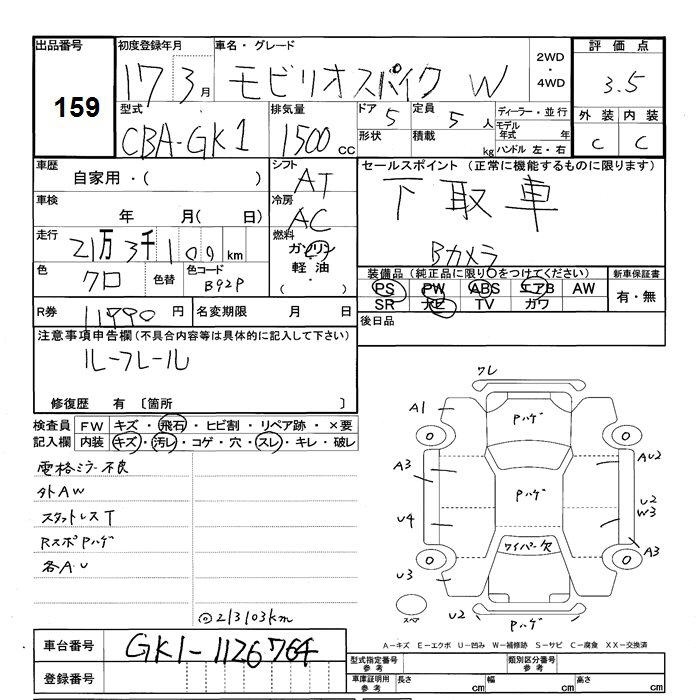 出品番号 初度登録年月 車名・グレード 2WD・4WD 評価点
159 17 3月 モビリオスパイク W 3.5
型式 排気量 ドア 定員 ディーラー・並行 外装 内装
CBA-GK1 1500cc 5 5人 モデル年式 年 C C
形状 積載 kg ハンドル 左・右
車歴 シフト セールスポイント(正常に機能するものに限ります)
自家用・( ) AT 下取車
車検 冷房
年 月( 日) AC
走行 燃料 Bカメラ
21万3千100km ガソリン
色 色替 色コード 軽油 装備品(純正品に限り○をつけてください) 新車保証書
クロ B92P ( ・ ) PS PW ABS エアB AW 有・無
SR ナビ TV ガワ
R券 11990円 名変期限 月 日 後日品
注意事項申告欄(不具合内容等は具体的に記入して下さい)
ルーフレール
修復歴 有〔箇所 〕
検査員 FW キズ・飛石・ヒビ割・リペア跡・×要
記入欄 内装 キズ・汚レ・コゲ・穴・スレ・キレ・破レ
電格ミラー不良
外AW
スタットレスT
RスポPハゲ
各A・U
◎213103km
ワレ
A1 Pハゲ
A3 AU2
Pハゲ
U4 U2
W3
ワイパー欠 A3
U3
スペア U2 Pハゲ
A-キズ E-エクボ U-凹み W-補修跡 S-サビ C-腐食 XX-交換済
車台番号 GK1-1126764
型式指定番号 参考 類別区分番号 参考
登録番号 車庫証明用 参考 長さ cm 幅 cm 高さ cm